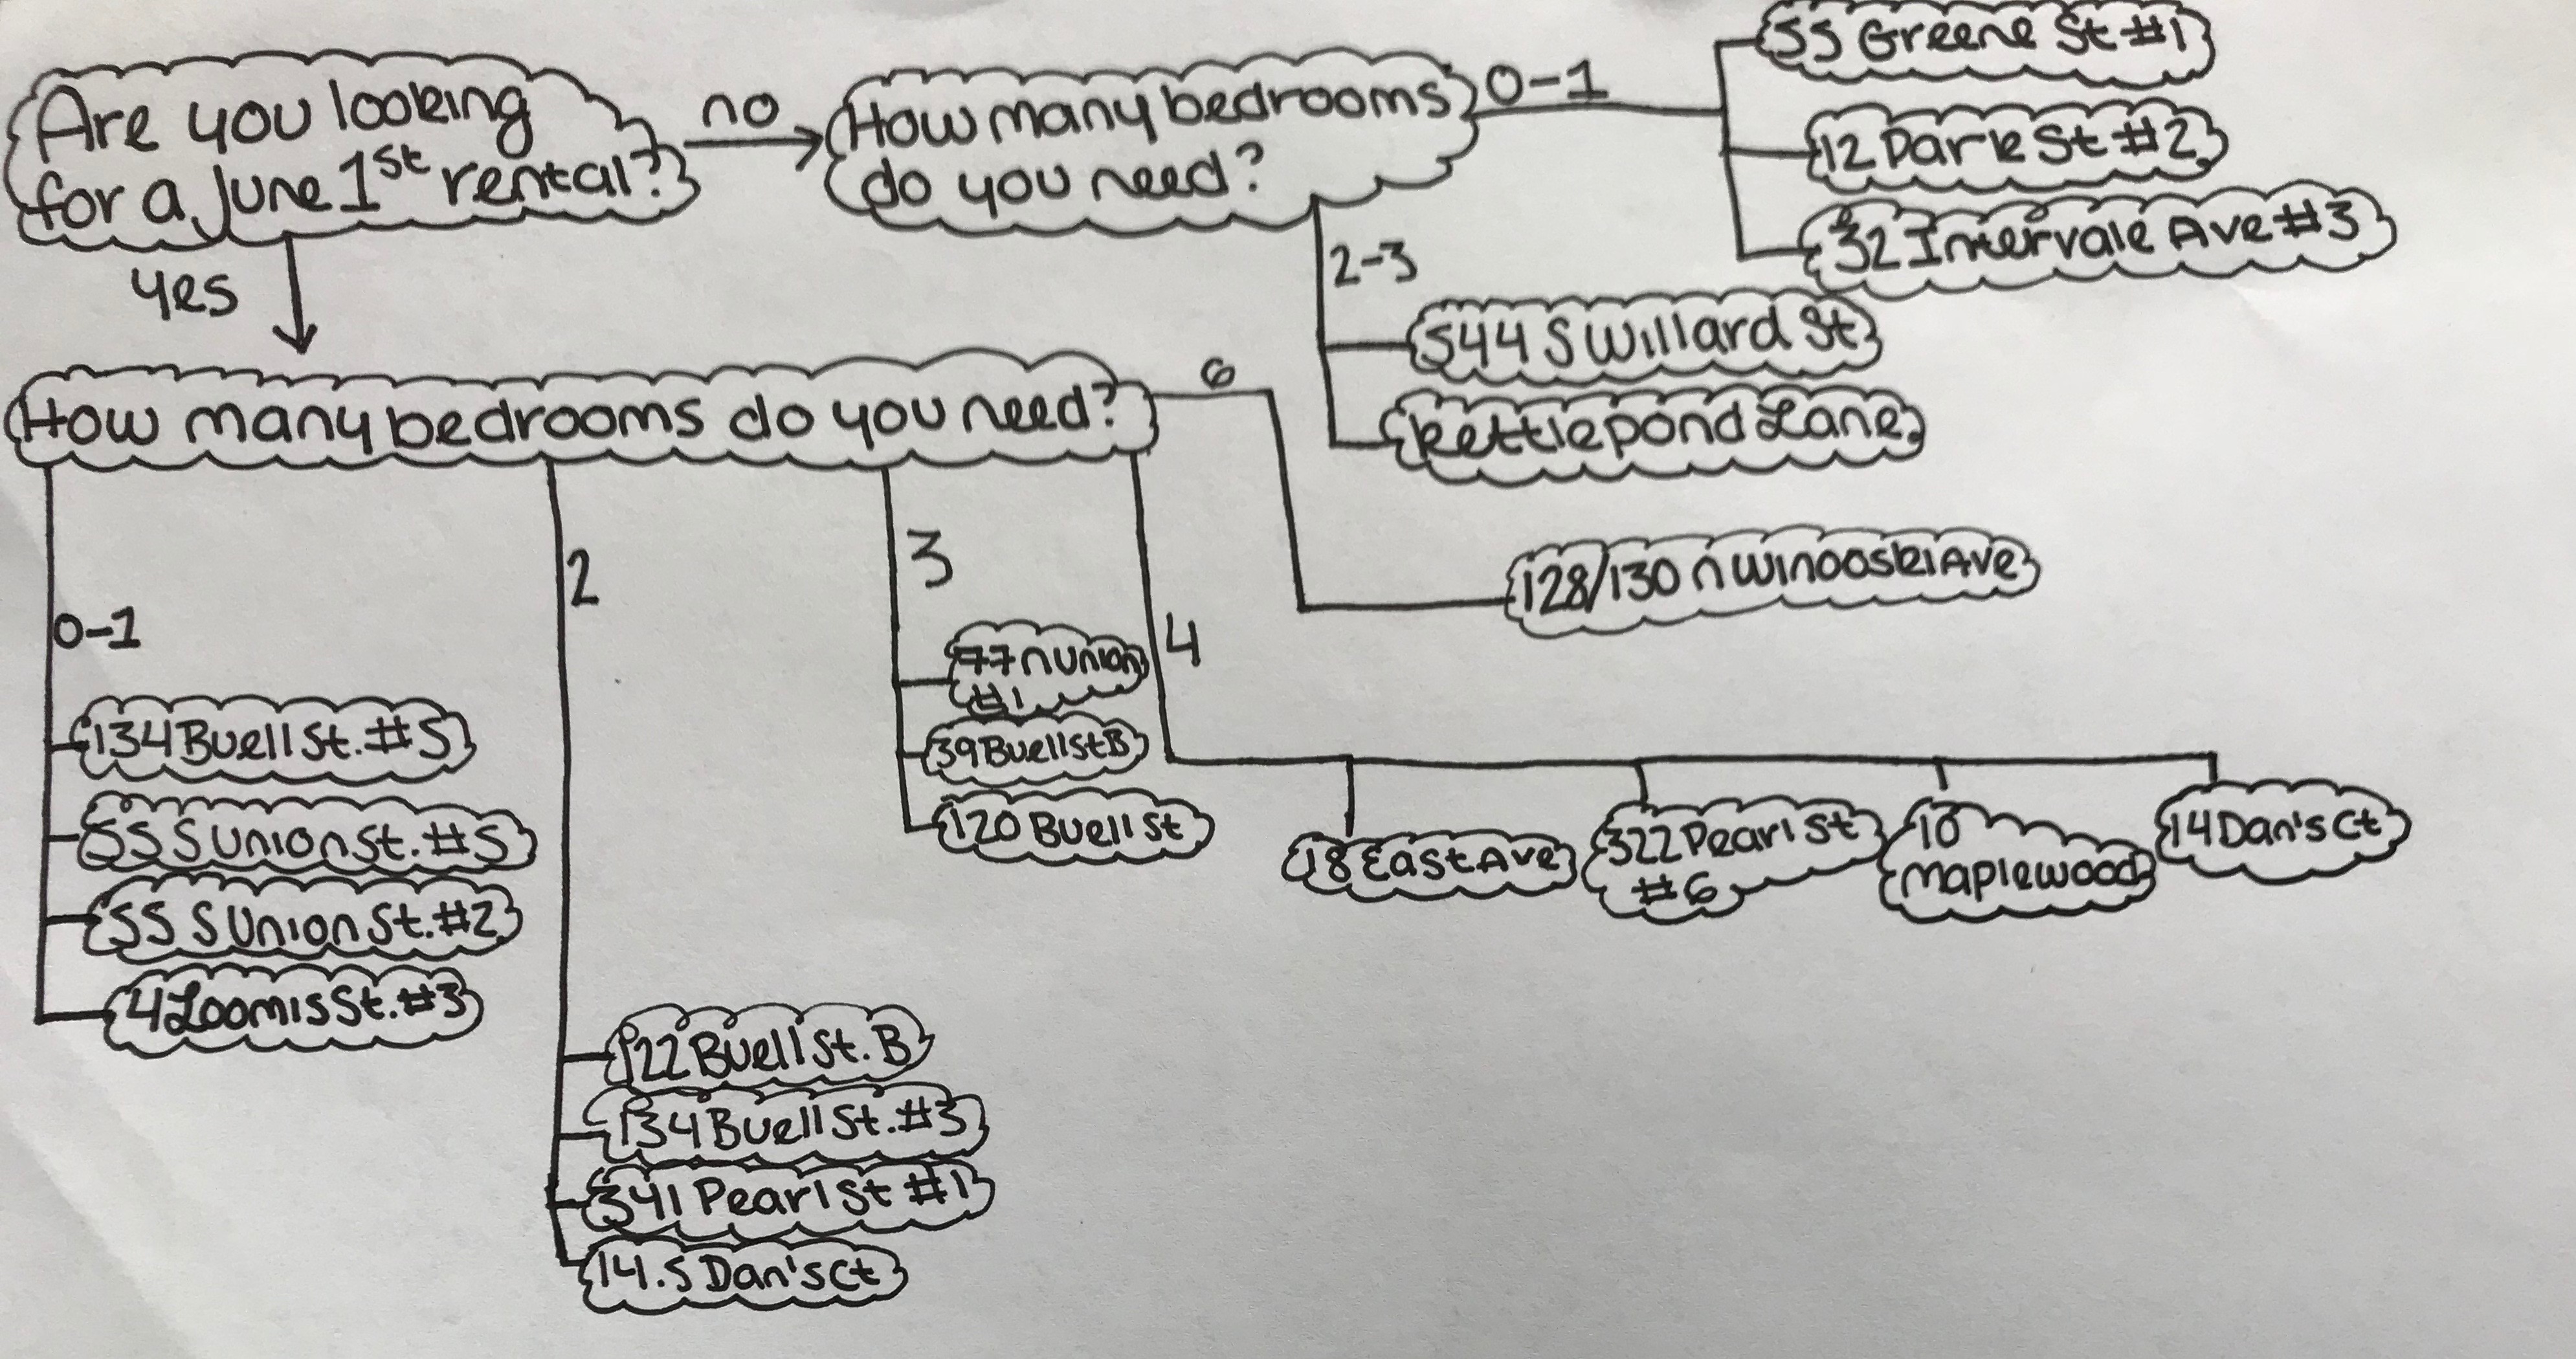 Are you looking
for a June 1st rental?
no
How many bedrooms
do you need?
0-1
55 Greene St #1
12 Park St #2
32 Intervale Ave #3
2-3
544 S Willard St
Kettlepond Lane
yes
How many bedrooms do you need?
6
128/130 n Winooski Ave
0-1
134 Buell St. #5
55 S Union St. #5
55 S Union St. #2
4 Loomis St. #3
2
122 Buell St. B
134 Buell St. #3
341 Pearl St #1
14.5 Dan's Ct
3
77 n Union
#1
39 Buell St B
120 Buell St
4
18 East Ave
322 Pearl St
#6
10
maplewood
14 Dan's Ct